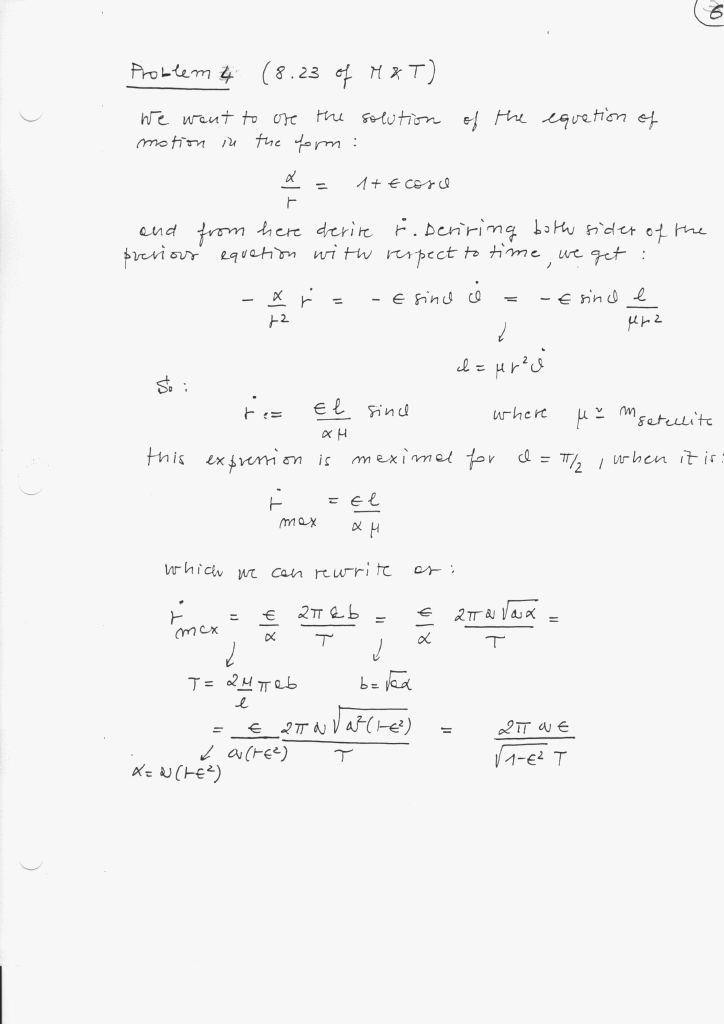 6
Problem 4 (8.23 of M & T)
We want to use the solution of the equation of
motion in the form :
α/r = 1 + ϵ cos θ
and from here derive ṙ. Deriving both sides of the
previous equation with respect to time, we get :
- α/r² ṙ = - ϵ sin θ θ̇ = - ϵ sin θ l/μr²
l = μr²θ̇
So :
ṙ = ϵl/αμ sin θ where μ ≃ m satellite
this expression is maximal for θ = π/2 , when it is :
ṙ max = ϵl/αμ
which we can rewrite as :
ṙ max = ϵ/α 2πab/T = ϵ/α 2πa√aα/T =
T = 2μ/l πab b = √aα
= ϵ/a(1-ϵ²) 2πa√a²(1-ϵ²)/T = 2πaϵ/√1-ϵ² T
α = a(1-ϵ²)